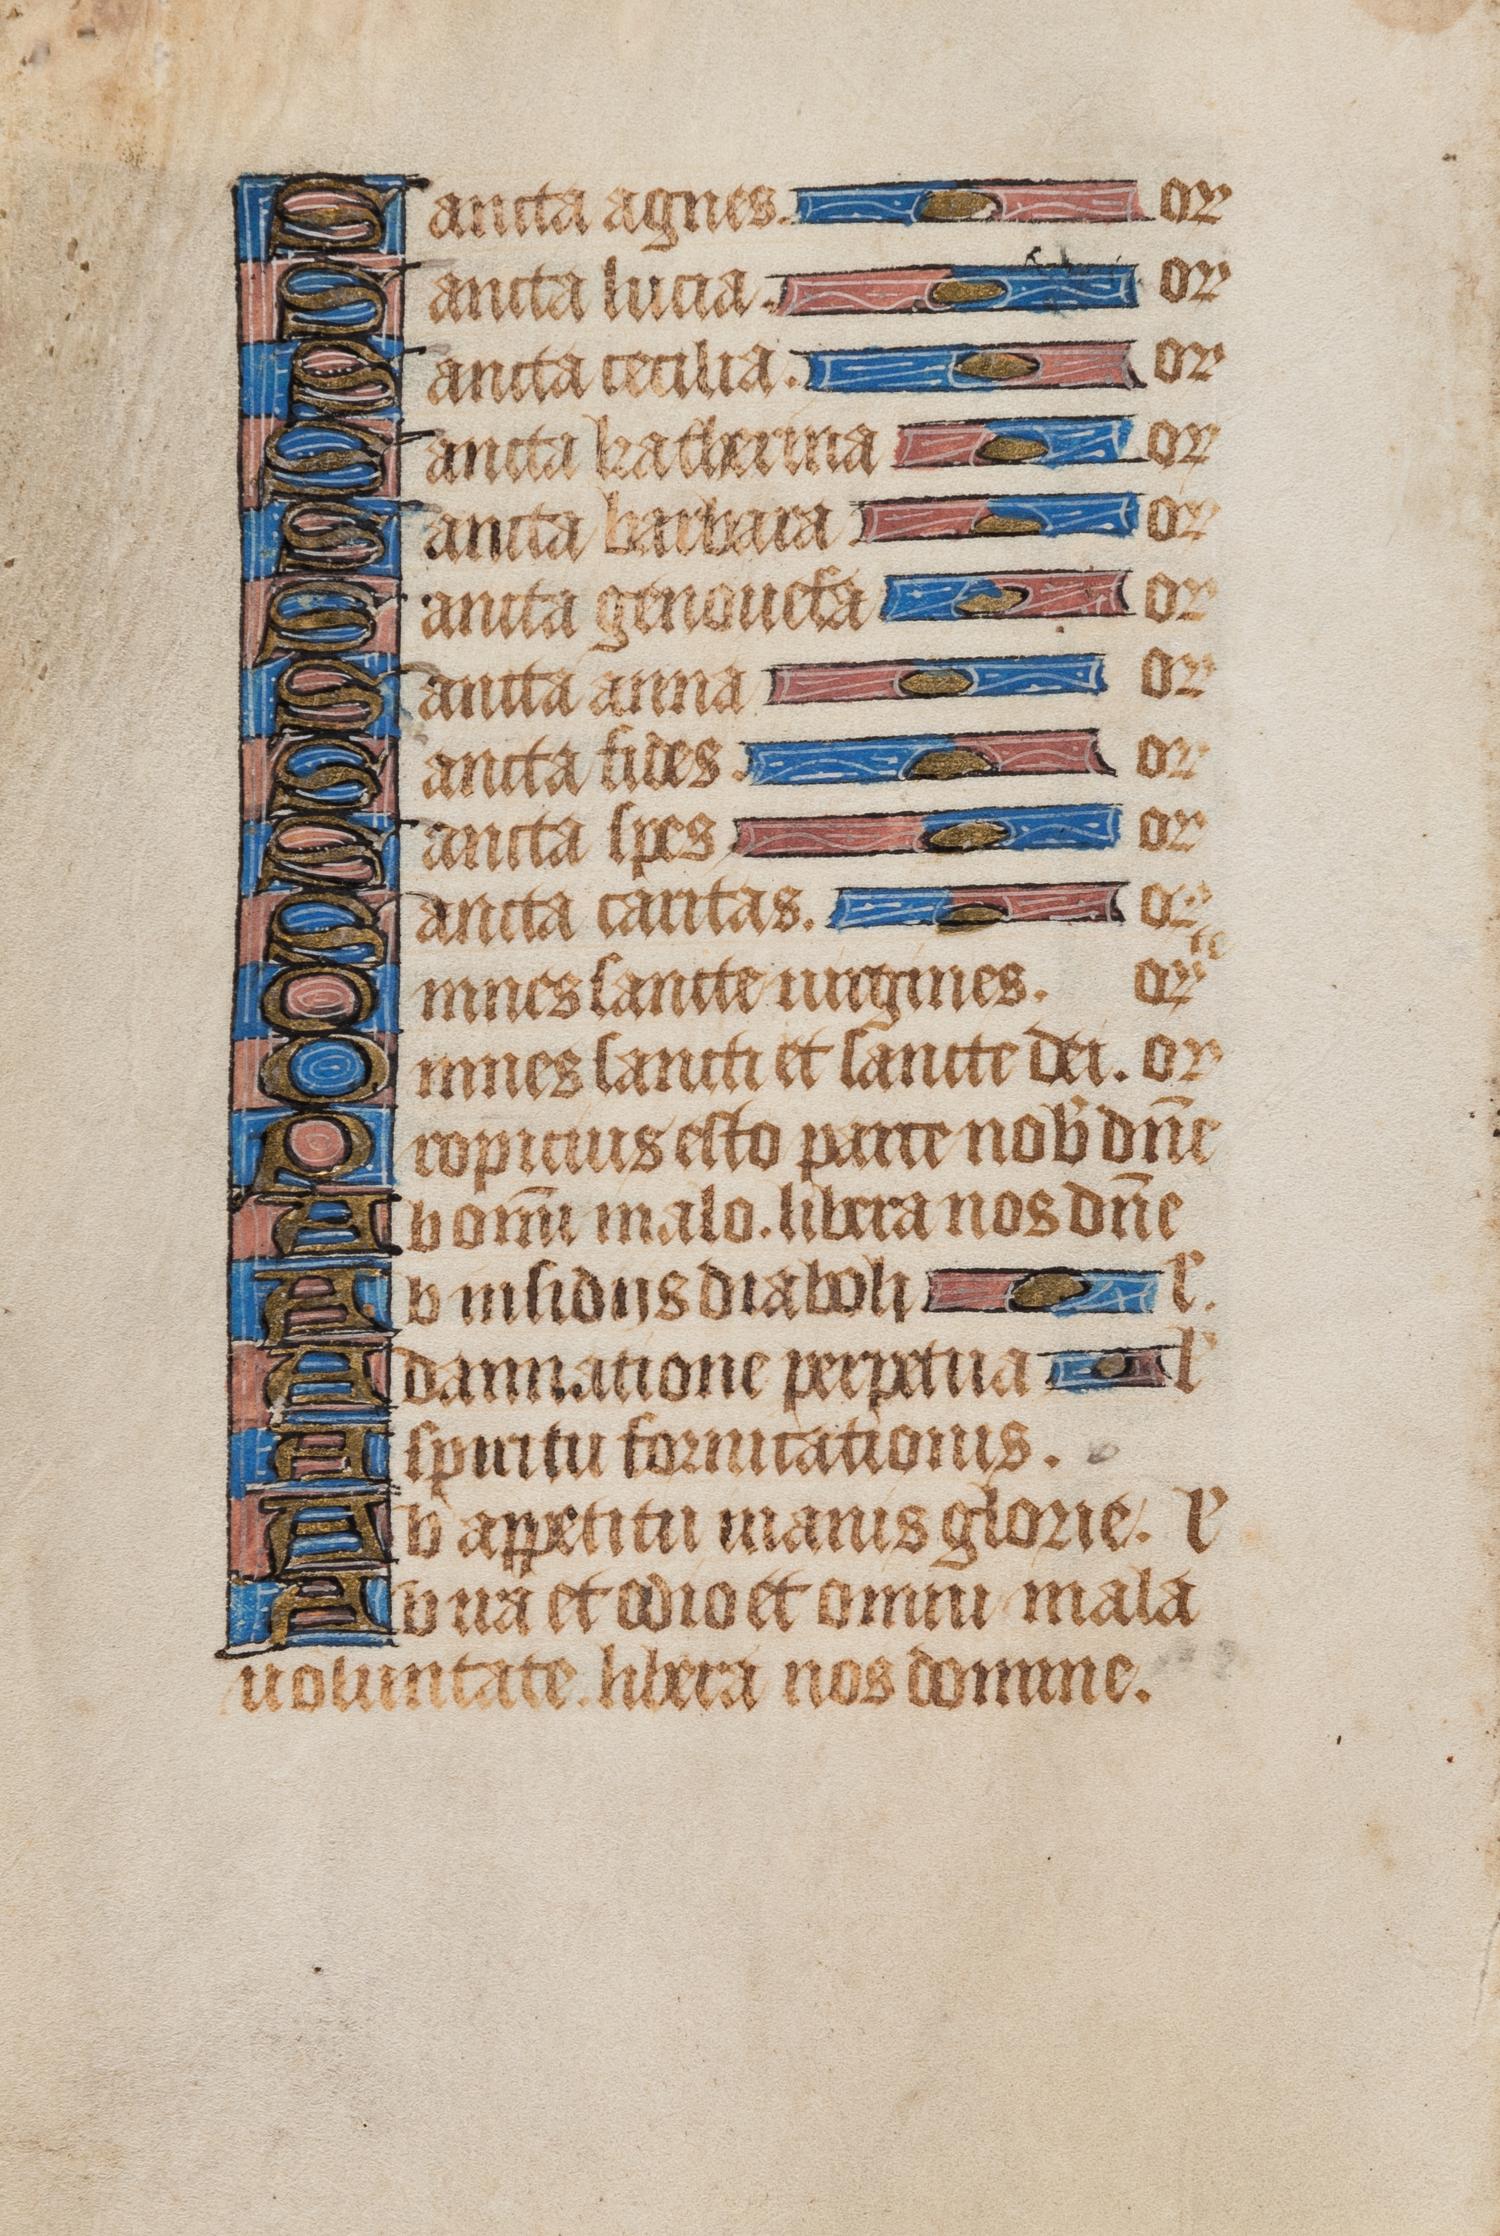 Sancta agnes. or
Sancta lucia. or
Sancta cecilia. or
Sancta katherina or
Sancta barbara or
Sancta genouefa or
Sancta anna or
Sancta fides. or
Sancta spes. or
Sancta caritas. or
Omnes sancte uirgines. or te
Omnes sancti et sancte dei. or
Propicius esto parce nob̄ dn̄e
Ab om̄i malo. libera nos dn̄e
Ab insidiis diaboli l.
A dampnatione perpetua l
A spiritu fornicationis.
Ab appetitu inanis glorie. l
Ab ira et odio et omni mala
uoluntate. libera nos domine.